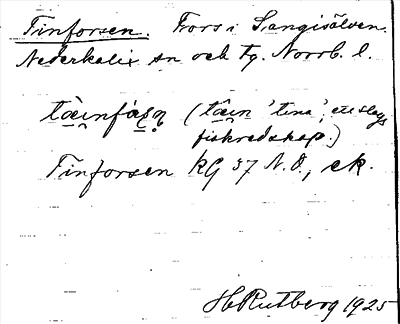 Tinforsen. Fors i Sangisälven.
Nederkalix sn och tg. Norrb. l.
tà̤i̤nfás̤n̥ (tâ̤i̤n 'tina', ett slags
fiskredskap.)
Tinforsen KG 37 N.O., ek.
H Rutberg 1925